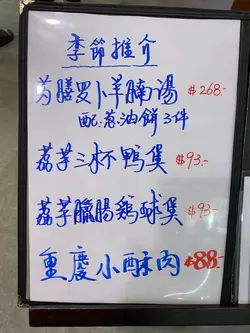 季節推介
芶膳罗卜羊腩湯 $268.-
配:葱油餅3件
荔芋三杯鴨煲 $93.-
荔芋臘腸鷄球煲 $93.-
重慶小酥肉 $88.-